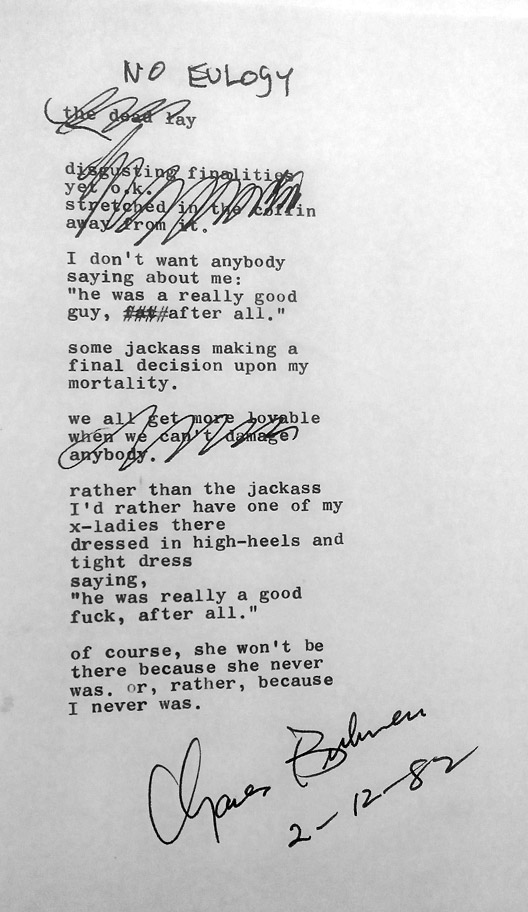 NO EULOGY
the dead lay
disgusting finalities
yet o.k.
stretched in the coffin
away from it.
I don't want anybody
saying about me:
"he was a really good
guy, ####after all."
some jackass making a
final decision upon my
mortality.
we all get more lovable
when we can't damage
anybody.
rather than the jackass
I'd rather have one of my
x-ladies there
dressed in high-heels and
tight dress
saying,
"he was really a good
fuck, after all."
of course, she won't be
there because she never
was. or, rather, because
I never was.
Charles Bukowski
2-12-82